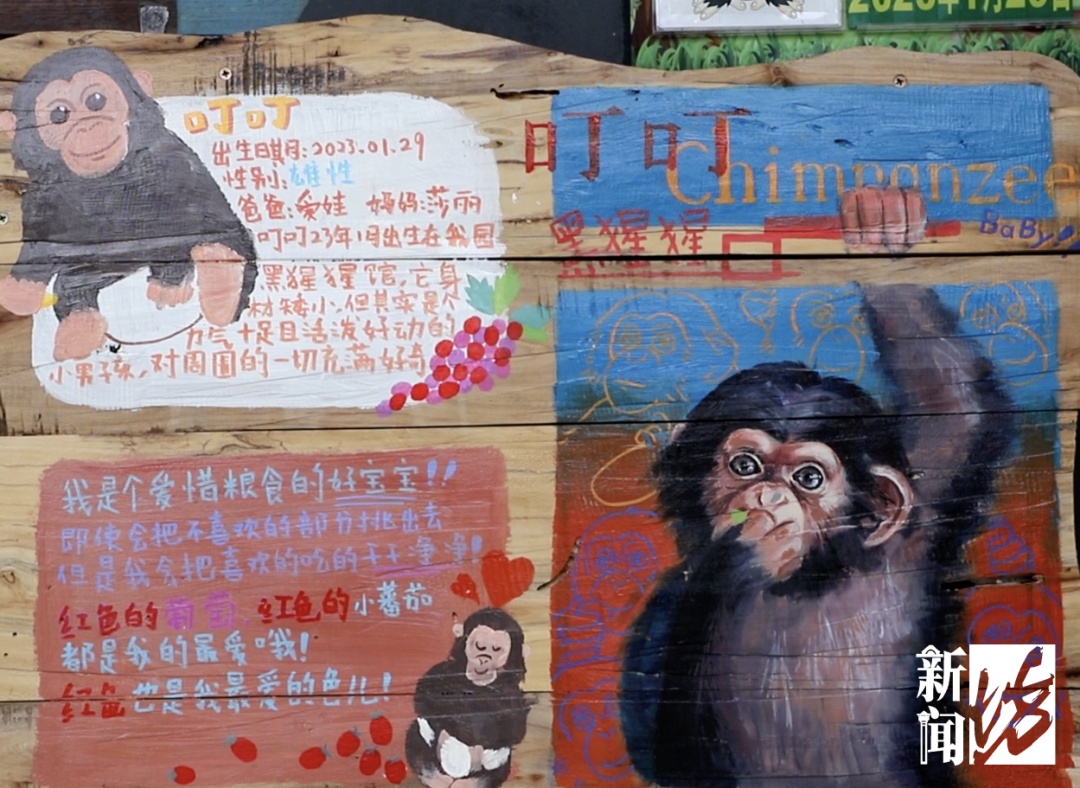 叮叮
出生日期:2023.01.29
性别:雄性
爸爸:爱娃 妈妈:莎丽
叮叮23年1月出生在我园
黑猩猩馆,它身
材矮小,但其实是个
力气十足且活泼好动的
小男孩,对周围的一切充满好奇
我是个爱惜粮食的好宝宝!!
即使会把不喜欢的部分挑出去
但是我会把喜欢的吃的干干净净!
红色的葡萄,红色的小蕃茄
都是我的最爱哦!
红色也是我最爱的色儿!
叮叮
Chimpanzee
黑猩猩
BaBy!!
新闻坊